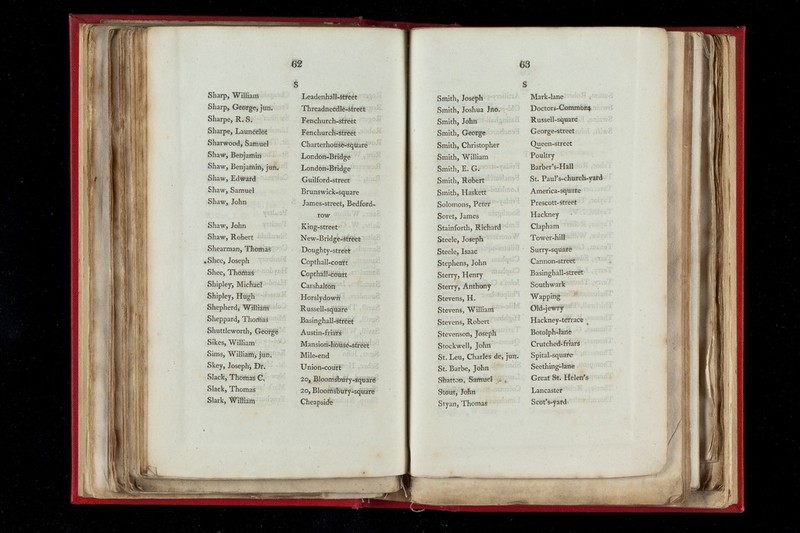 62
S
Sharp, William Leadenhall-street
Sharp, George, jun. Threadneedle-street
Sharpe, R. S. Fenchurch-street
Sharpe, Launcelot Fenchurch-street
Sharwood, Samuel Charterhouse-square
Shaw, Benjamin London-Bridge
Shaw, Benjamin, jun. London-Bridge
Shaw, Edward Guilford-street
Shaw, Samuel Brunswick-square
Shaw, John James-street, Bedford-
row
Shaw, John King-street
Shaw, Robert New-Bridge-street
Shearman, Thomas Doughty-street
Shee, Joseph Copthall-court
Shee, Thomas Copthall-court
Shipley, Michael Carshalton
Shipley, Hugh Horslydown
Shepherd, William Russell-square
Sheppard, Thomas Basinghall-street
Shuttleworth, George Austin-friars
Sikes, William Mansion-house-street
Sims, William, jun. Mile-end
Skey, Joseph, Dr. Union-court
Slack, Thomas C. 20, Bloomsbury-square
Slack, Thomas 20, Bloomsbury-square
Slark, William Cheapside
63
S
Smith, Joseph Mark-lane
Smith, Joshua Jno. Doctors-Commons
Smith, John Russell-square
Smith, George George-street
Smith, Christopher Queen-street
Smith, William Poultry
Smith, E. G. Barber's-Hall
Smith, Robert St. Paul's-church-yard
Smith, Haskett America-square
Solomons, Peter Prescott-street
Soret, James Hackney
Stainforth, Richard Clapham
Steele, Joseph Tower-hill
Steele, Isaac Surry-square
Stephens, John Cannon-street
Sterry, Henry Basinghall-street
Sterry, Anthony Southwark
Stevens, H. Wapping
Stevens, William Old-jewry
Stevens, Robert Hackney-terrace
Stevenson, Joseph Botolph-lane
Stockwell, John Crutched-friars
St. Leu, Charles de, jun. Spital-square
St. Barbe, John Seething-lane
Samuel Great St. Helen's
Stout, John Lancaster
Styan, Thomas Scot's-yard